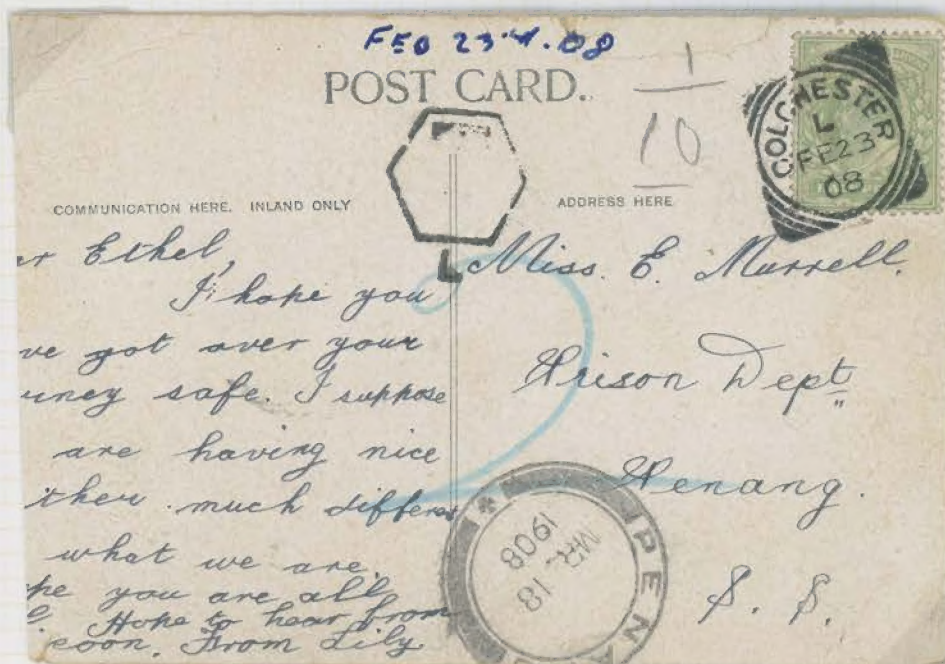 FEB 23.4.08
POST CARD.
1
10
COLCHESTER
L
FE23
08
COMMUNICATION HERE. INLAND ONLY
ADDRESS HERE
L
r Ethel,
I hope you
ve got over your
urney safe. I suppose
are having nice
ther much differen
what we are.
pe you are all
Hope to hear from
soon. From Lily
2
Miss. E. Murrell.
Prison Dept
Penang.
S. S.
PENA
MR. 18
1908